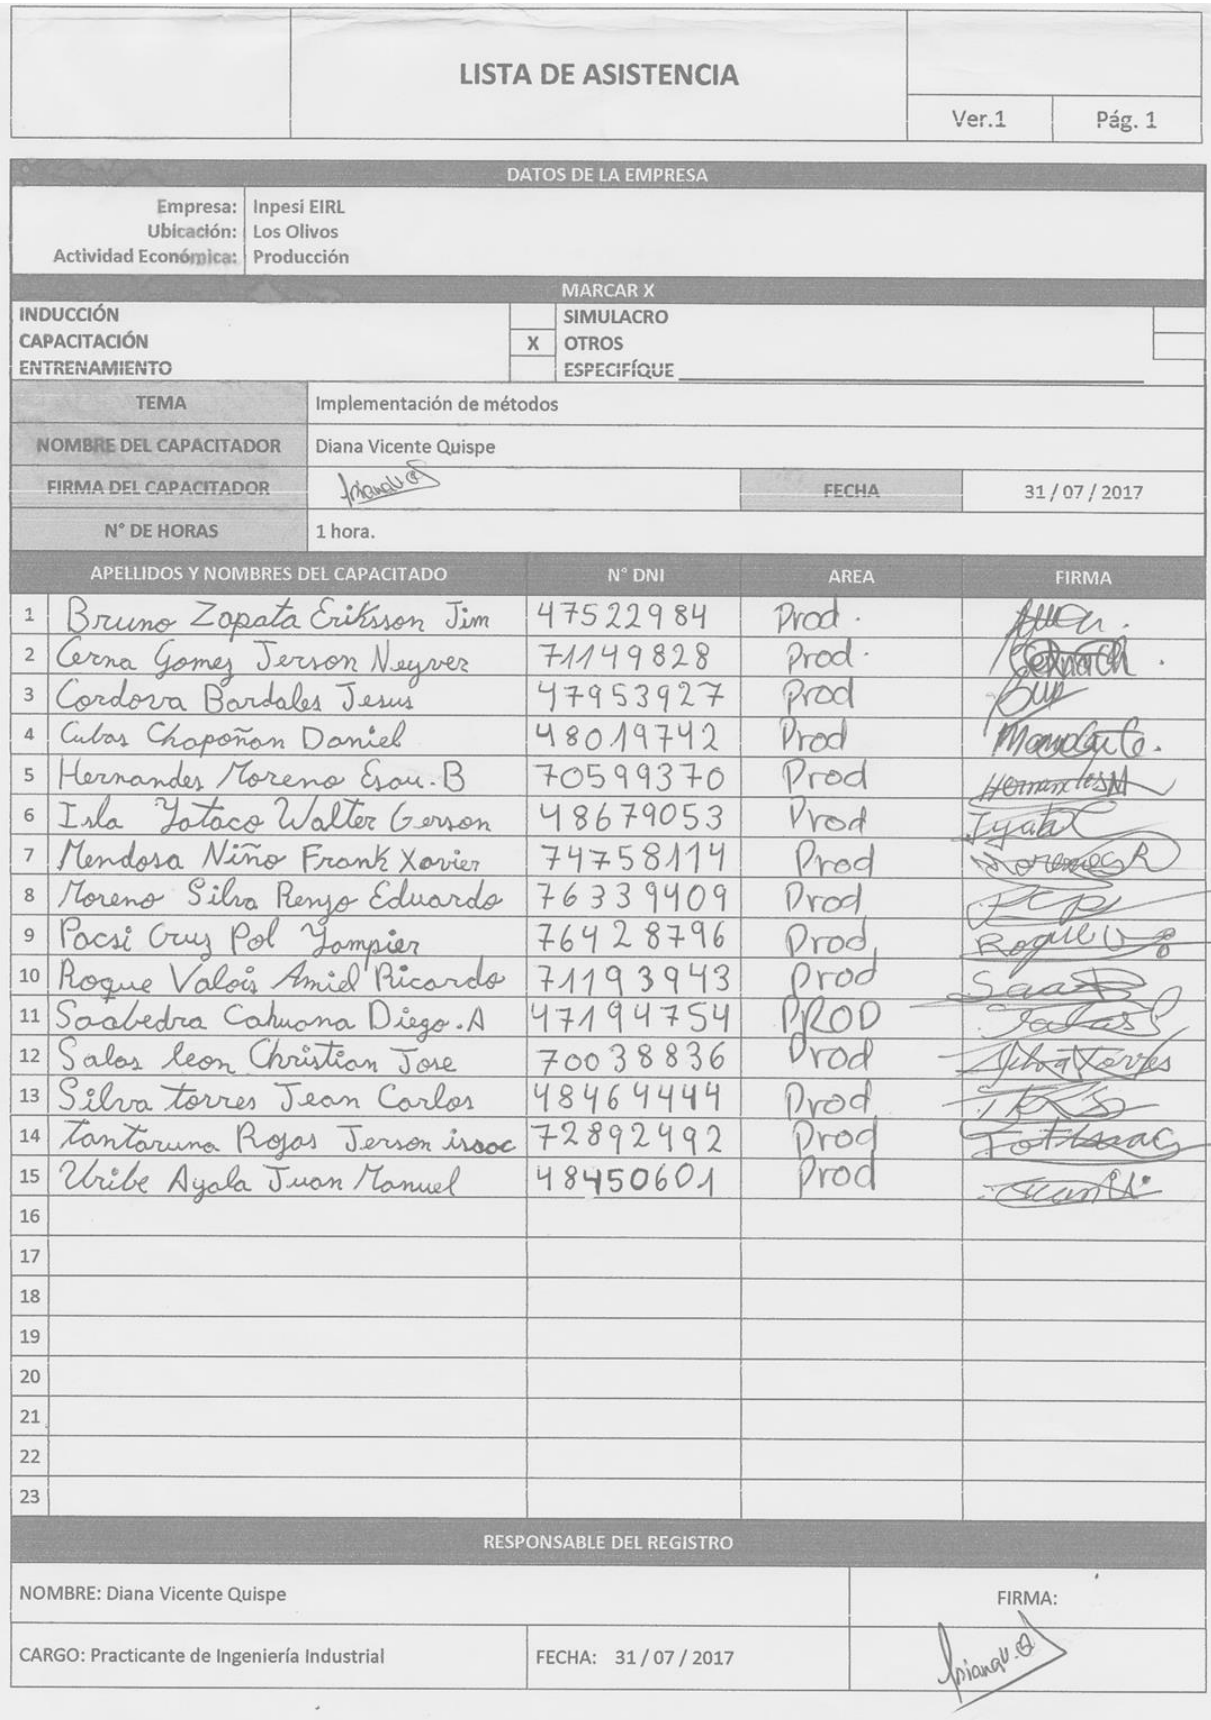 LISTA DE ASISTENCIA
Ver.1 Pág. 1
DATOS DE LA EMPRESA
Empresa: Inpesi EIRL
Ubicación: Los Olivos
Actividad Económica: Producción
MARCAR X
INDUCCIÓN SIMULACRO
CAPACITACIÓN X OTROS
ENTRENAMIENTO ESPECIFÍQUE
TEMA Implementación de métodos
NOMBRE DEL CAPACITADOR Diana Vicente Quispe
FIRMA DEL CAPACITADOR FECHA 31 / 07 / 2017
N° DE HORAS 1 hora.
APELLIDOS Y NOMBRES DEL CAPACITADO N° DNI AREA FIRMA
1 Bruno Zapata Eriksson Jim 47522984 Prod.
2 Cerna Gomez Jerson Neyver 71149828 Prod.
3 Cordova Bardales Jesus 47953927 Prod
4 Cubas Chapoñan Daniel 48019742 Prod
5 Hernandes Moreno Esau. B 70599370 Prod
6 Isla Yataco Walter Gerson 48679053 Prod
7 Mendosa Niño Frank Xavier 74758114 Prod
8 Moreno Silva Renzo Eduardo 76339409 Prod
9 Pacsi Cruz Pol Yampier 76428796 Prod
10 Roque Valois Amiel Ricardo 71193943 Prod Roque
11 Saabedra Cahuana Diego. A 47194754 PROD
12 Salas leon Christian Jose 70038836 Prod
13 Silva torres Jean Carlos 48464444 Prod
14 Tantaruna Rojas Jerson isaac 72892492 Prod
15 Uribe Ayala Juan Manuel 48450601 Prod
16
17
18
19
20
21
22
23
RESPONSABLE DEL REGISTRO
NOMBRE: Diana Vicente Quispe FIRMA:
CARGO: Practicante de Ingeniería Industrial FECHA: 31 / 07 / 2017